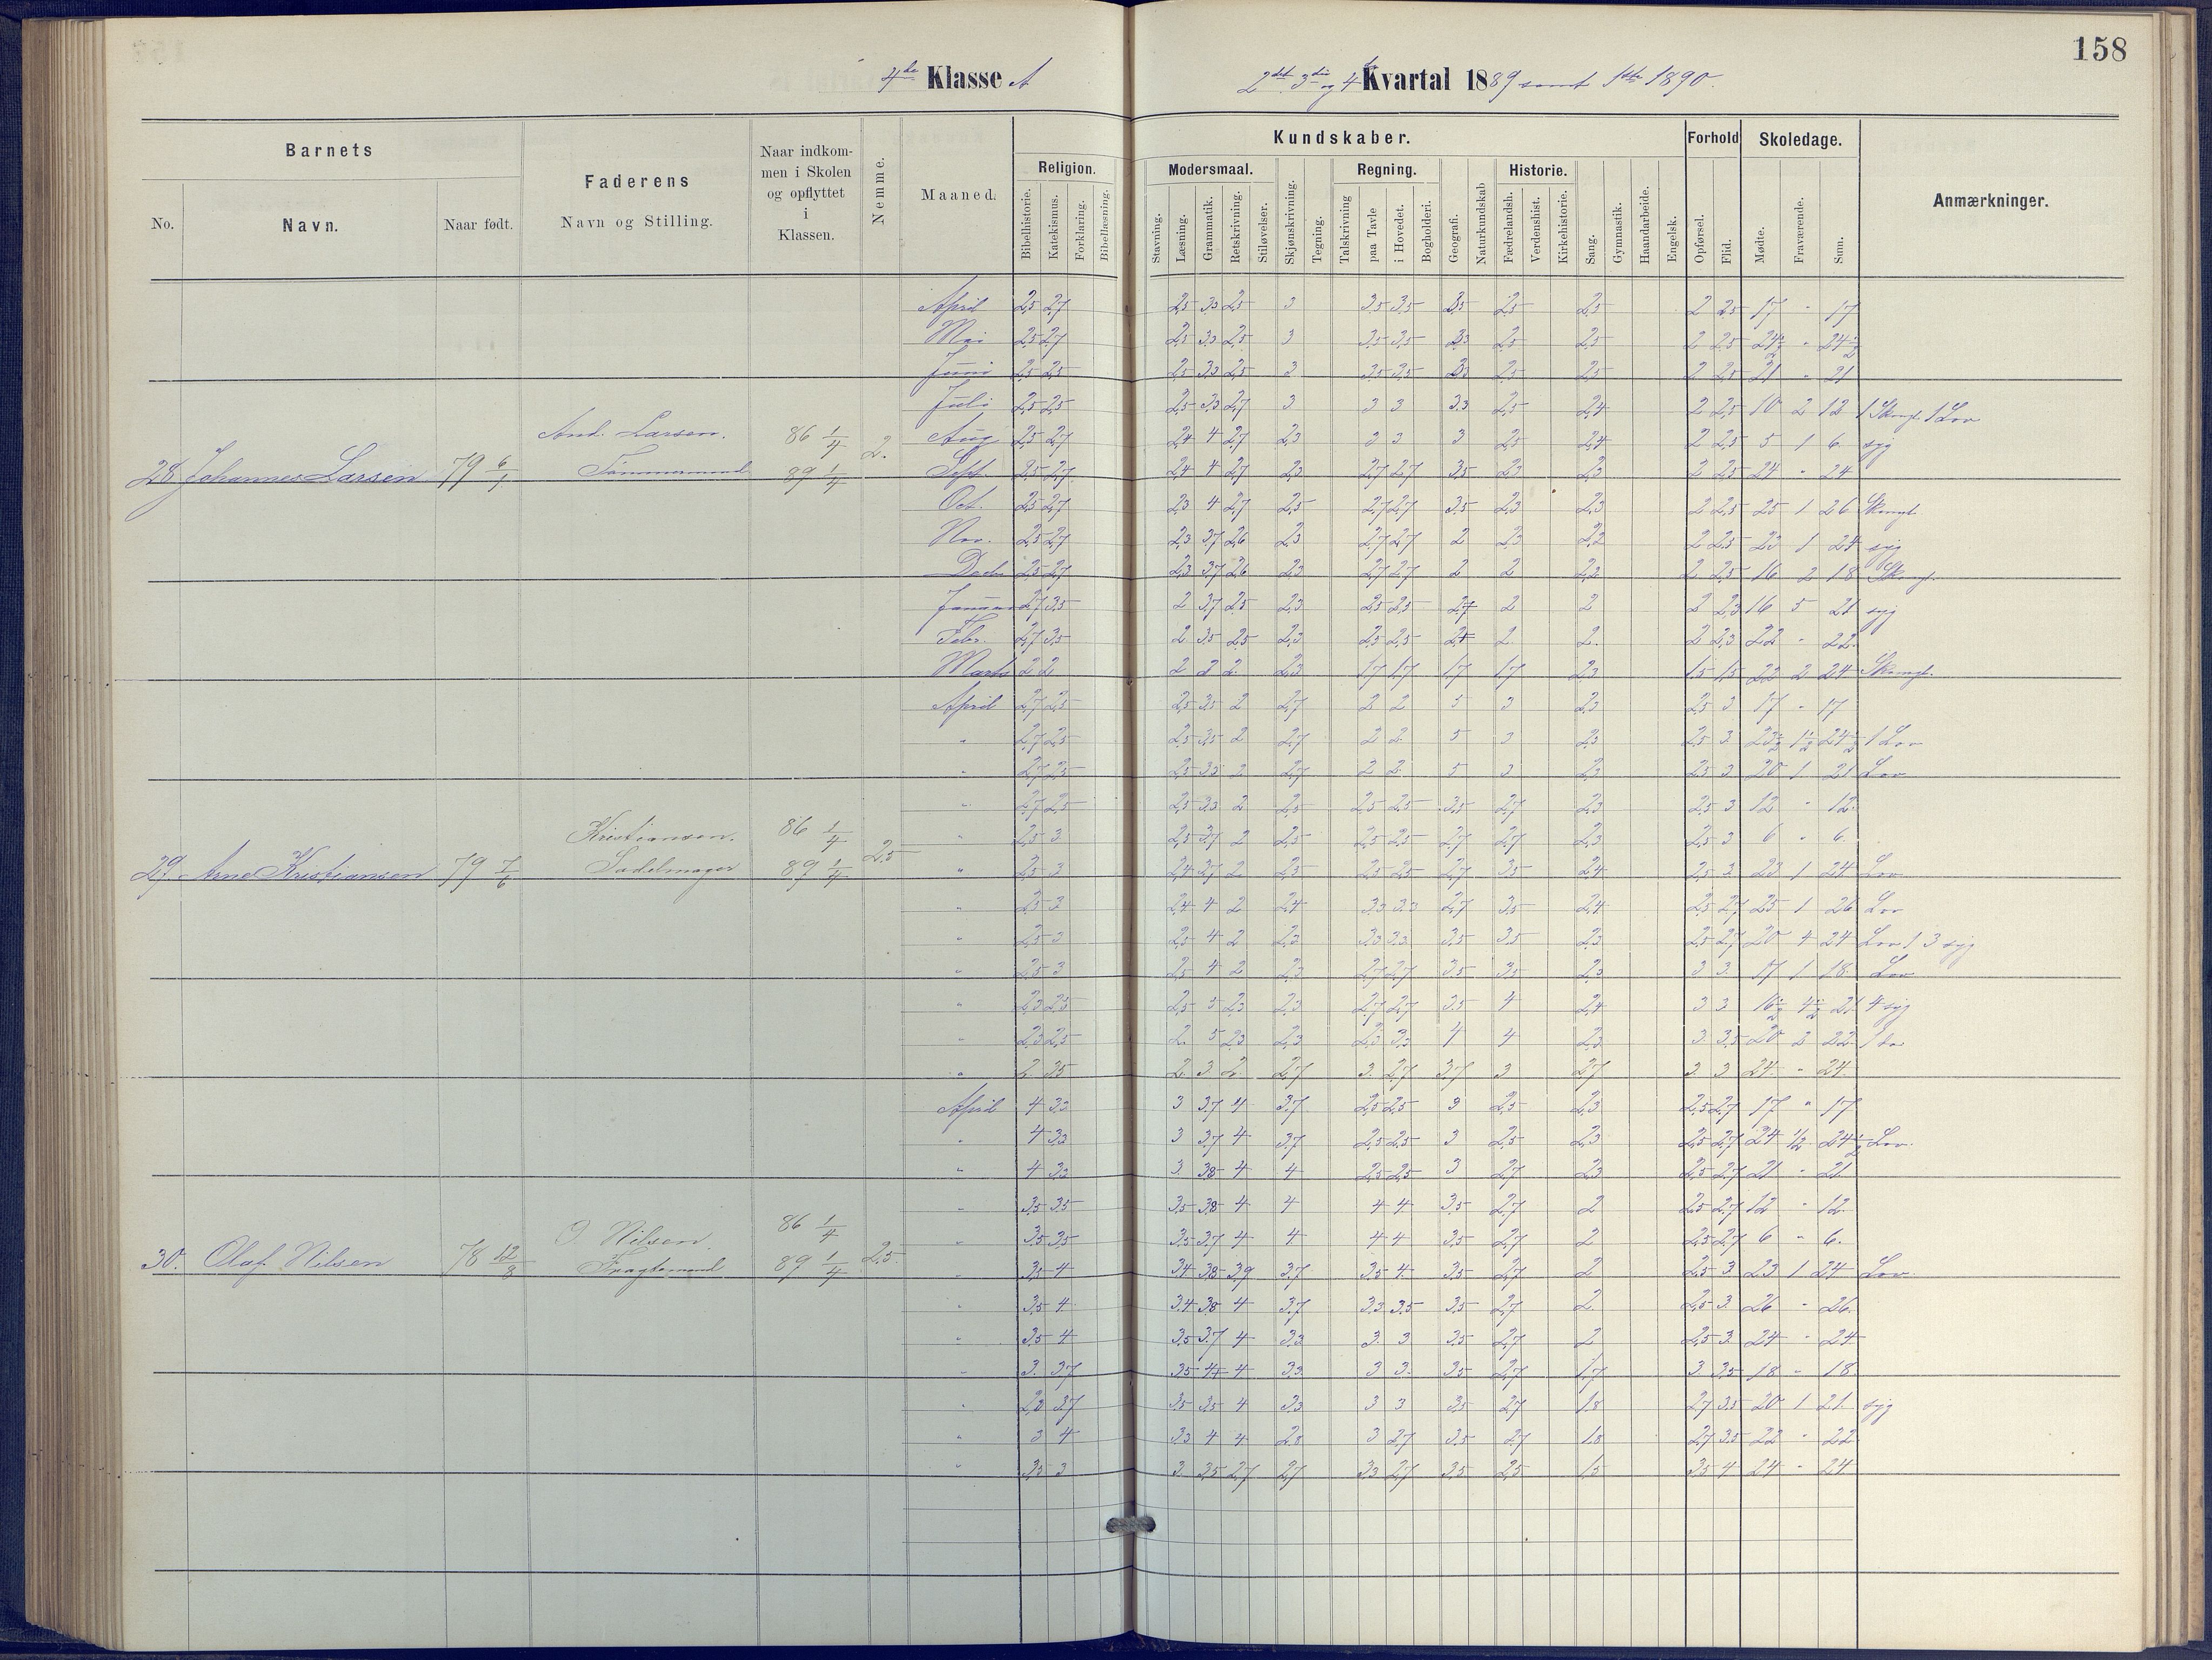 158
4de Klasse A
2det 3die og 4de Kvartal 1889 samt 1ste 1890.
Barnets
Faderens
Navn og Stilling.
Naar indkom-
men i Skolen
og opflyttet
i
Klassen.
Nemme.
Maaned.
Kundskaber.
Forhold
Skoledage.
Anmærkninger.
No.
Navn.
Naar født.
Religion.
Modersmaal.
Regning.
Historie.
Bibelhistorie.
Katekismus.
Forklaring.
Bibellæsning.
Stavning.
Læsning.
Grammatik.
Retskrivning.
Stiløvelser.
Skjønskrivning.
Tegning.
Talskrivning
paa Tavle
i Hovedet.
Bogholderi.
Geografi.
Naturkundskab
Fædrelandsh.
Verdenshist.
Kirkehistorie.
Sang.
Gymnastik.
Haandarbeide.
Engelsk.
Opførsel.
Flid.
Mødte.
Fraværende.
Sum.
April 2,5 2,7 2,5 3,3 2,5 3 3,5 3,5 2,5 2,5 2 2,5 17 " 17
Mai 2,5 2,7 2,5 3,3 2,5 3 3,5 3,5 2,5 2,5 2 2,5 24½ " 24½
Juni 2,5 2,5 2,5 3,3 2,5 3 3,5 3,5 2,5 2,5 2 2,5 21 " 21
Juli 2,5 2,5 2,5 3,3 2,7 3 3 3 3,3 2,5 2,4 2 2,5 10 2 12 1 Lov
And. Larsen. 86 1/4 2. Aug 2,5 2,7 2,4 4 2,7 2,3 3 3 3 2,5 2,4 2 2,5 5 1 6 syg
28 Johannes Larsen 79 6/1 Tømmermand 89 1/4 Sept. 2,5 2,7 2,4 4 2,7 2,3 2,7 2,7 3,5 2,3 2,3 2 2,5 24 " 24
Oct. 2,5 2,7 2,3 4 2,7 2,5 2,7 2,7 3,5 2,3 2,3 2 2,5 25 1 26
Nov. 2,5 2,7 2,3 3,7 2,6 2,3 2,7 2,7 2 2,3 2,2 2 2,5 23 1 24 syg
Decbr 2,5 2,7 2,3 3,7 2,6 2,3 2,7 2,7 2 2 2,2 2 2,5 16 2 18
Januar 2,7 3,5 2 3,7 2,5 2,3 2,5 2,5 2,7 2 2 2 2,3 16 5 21 syg
Febr. 2,7 3,5 2 3,5 2,5 2,3 2,5 2,5 2,4 2 2. 2 2,3 22 " 22
Marts 2 2 2 2 2 2,3 1,7 1,7 1,7 1,7 2,3 1,5 1,5 22 2 24
April 2,7 2,5 2,5 3,5 2 2,7 2 2 5 3 2,3 2,5 3 17 " 17
" 2,7 2,5 2,5 3,5 2 2,7 2 2 5 3 2,3 2,5 3 23½ 1½ 24½ 1 Lov
" 2,7 2,5 2,5 3,5 2 2,7 2 2 5 3 2,3 2,5 3 20 1 21 Lov
" 2,7 2,5 2,5 3,3 2 2,5 2,5 2,5 3,5 2,7 2,3 2,5 3 12 " 12
Kristiansen. 86 1/4 2,5 " 2,5 3 2,5 3,7 2 2,5 2,5 2,5 2,7 2,7 2,3 2,5 3 6 " 6.
29. Arne Kristiansen 79 7/6 Sadelmager 89 1/4 " 2,5 3 2,4 3,7 2 2,5 2,5 2,5 2,7 3,5 2,4 2,5 3 23 1 24 Lov
" 2,5 3 2,4 4 2 2,4 3,3 3,3 2,7 3,5 2,4 2,5 2,7 25 1 26 Lov
" 2,5 3 2,5 4 2 2,3 3,3 3,3 3,5 3,5 2,3 2,5 2,7 20 4 24 Lov 1 3 syg
" 2,5 3 2,5 4 2 2,3 2,7 2,7 3,5 3,5 2,3 3 3. 17 1 18 Lov
" 2,3 2,5 2,5 5 2,3 2,3 2,7 2,7 3,5 4 2,4 3 3 16½ 4½ 21 4 syg
" 2,3 2,5 2. 5 2,3 2,3 2,3 3,3 4 4 2,3 3. 3,5 20 2 22
" 2. 3,5 2 3 2. 2,7 3. 2,7 3,7 3 2,7 3. 3 24. " 24.
April 4 3,3 3 3,7 4 3,7 2,5 2,5 3 2,5 2,3 2,5 2,7 17 " 17
" 4 3,3 3 3,7 4 3,7 2,5 2,5 3 2,5 2,3 2,5 2,7 24 1/2 24½ Lov.
" 4 3,3 3. 3,8 4 4 2,5 2,5 3 2,7 2,3 2,5 2,7 21 " 21.
" 3,5 3,5 3,5 3,8 4 4 4 4 3,5 2,7 2 2,5 2,7 12 " 12.
O Nilsen 86 1/4 2,5. " 3,5 3,5 3,5 3,7 4 4 4 4 3,5 2,7 2 2,5 2,7 6 " 6.
30. Olaf Nilsen 78 12/8 Fragtemand 89 1/4 " 3,5 4 3,4 3,8 3,9 3,7 3,5 4. 3,5 2,7 2 2,5 3 23 1 24 Lov.
" 3,5 4 3,4 3,8 4 3,7 3,3 3,5 3,5 2,7 2 2,5 3. 26 " 26.
" 3,5 4 3,5 3,7 4 3,3 3. 3 3,5 2,7 2 2,5 3. 24 " 24
" 3. 3,7 3,5 4 4 3,3 3 3. 3,5 2,7 1,7 3. 3,5 18 " 18.
" 2,8 3,7 3,5 3,5 4 3,3 3 3 3,5 2,7 1,8 2,7 3,5 20 1 21 syg
" 3 4 3,3 4 4 2,8 3 2,7 3,5 2,7 1,8 2,7 3,5 22 " 22
" 3,5 3 3. 3,5 2,7 2,7 3,3 2,7 3,5 2,5 1,5 3,5 4 24 " 24